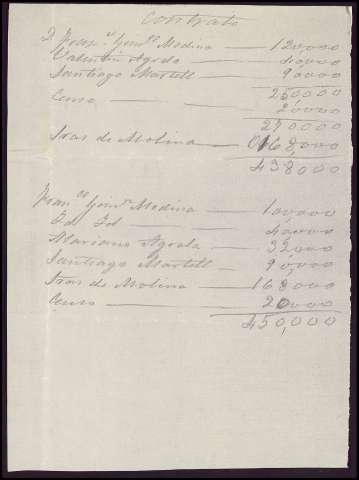 Contrato
D. Fran.co Gonz.z Medina — 120,000
Valentin Agreda — 40,000
Santiago Martell — 90,000
250,000
Censo — 20,000
270,000
Sras de Molina — 168,000
438,000
Fran.co Gonz.z Medina — 100,000
Id Id — 40,000
Mariano Agreda — 32,000
Santiago Martell — 90,000
Sras de Molina — 168,000
Censo — 20,000
450,000